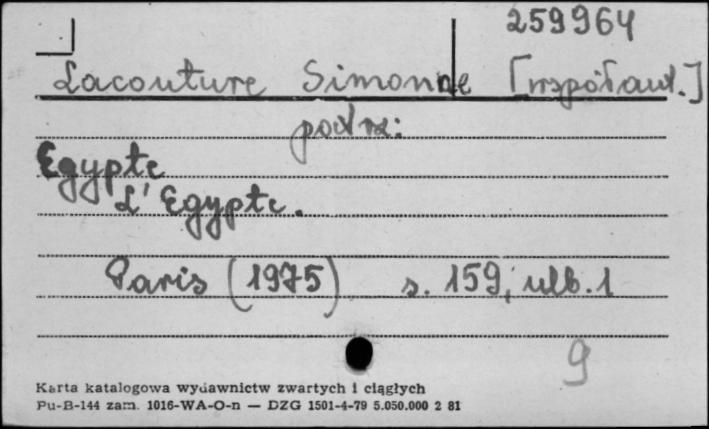 259964
Lacouture Simonne [współaut.]
patrz:
Egypte
L'Egypte.
Paris (1975) s. 159, ulb. 1
9
Karta katalogowa wydawnictw zwartych i ciągłych
Pu-B-144 zam. 1016-WA-O-n — DZG 1501-4-79 5.050.000 2 81